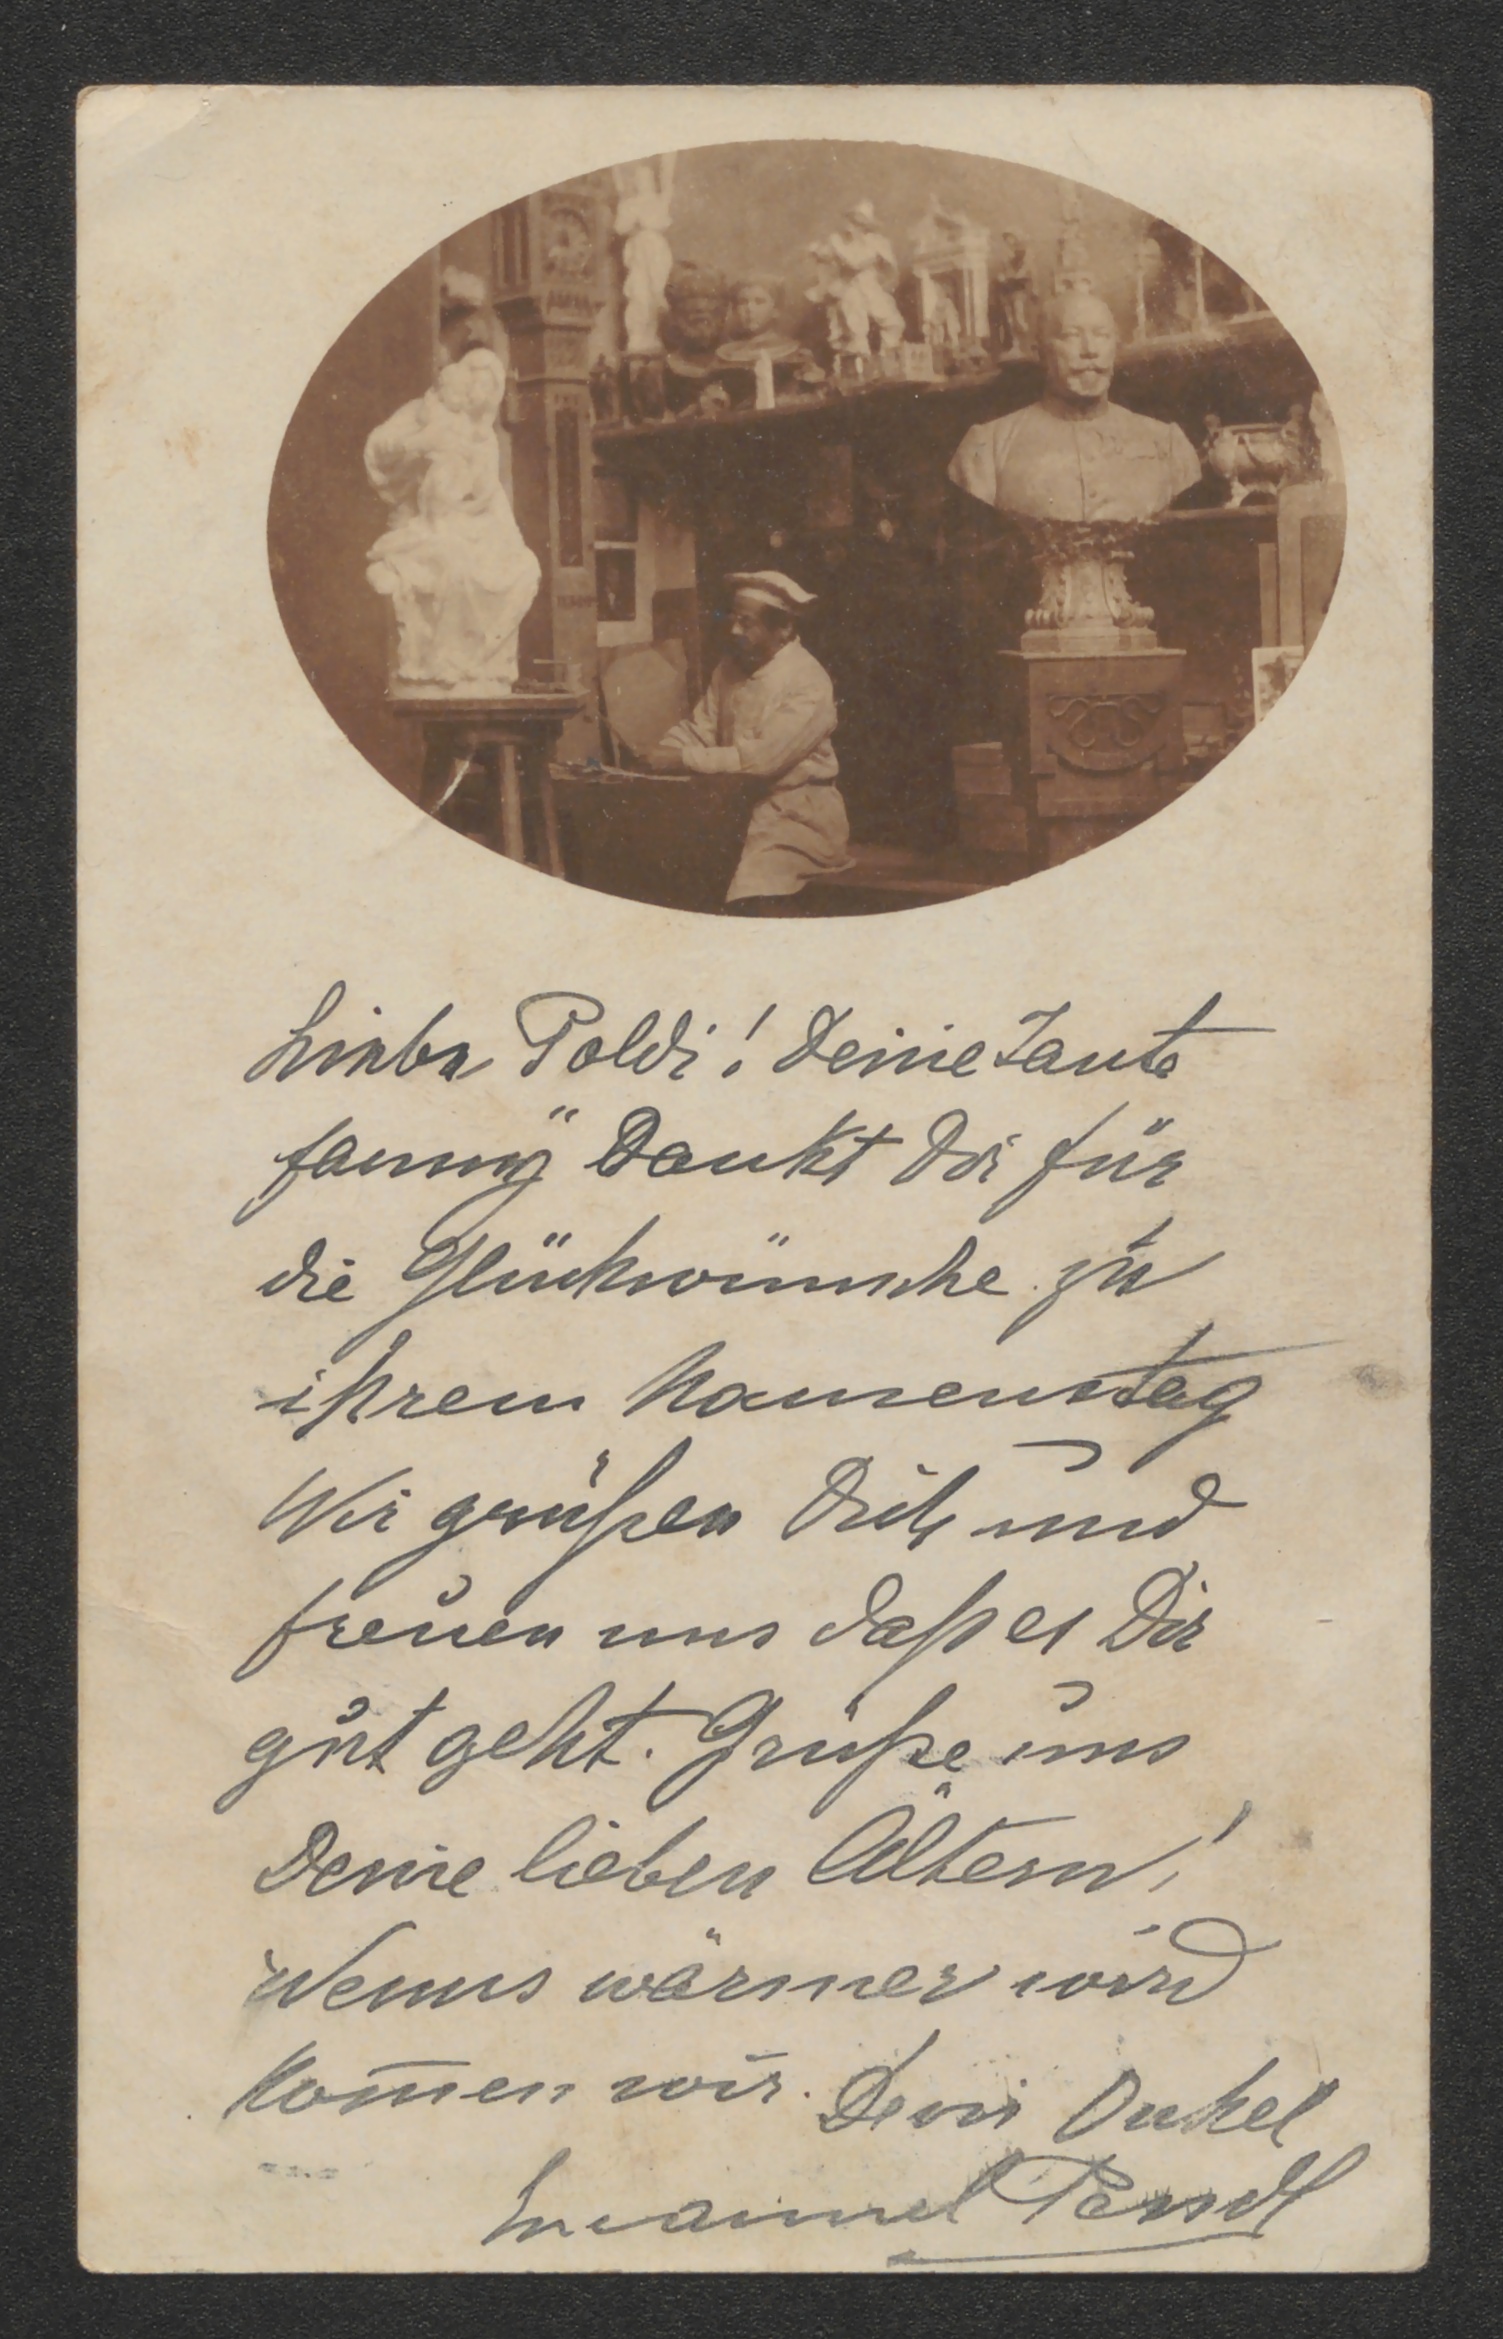 Liebe Poldi! Deine Tante
Fanny dankt Dir für
die Glückwünsche zu
ihrem Namenstag
Wir grüßen Dich und
freuen uns daß es Dir
gut geht. Grüße uns
Deine lieben Ältern!
Wenns wärmer wird
kom̅en wir. Dein Onkel
Emanuel Pendl